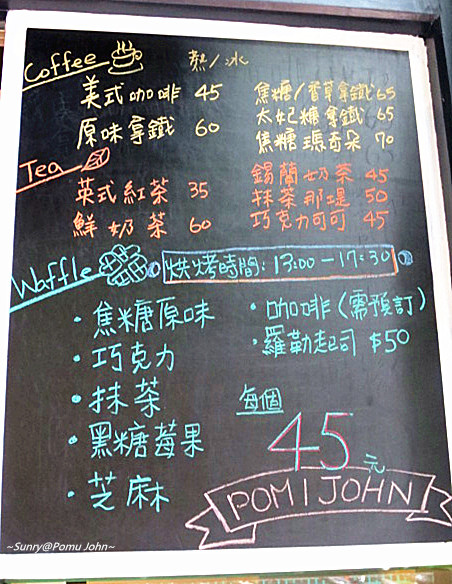 Coffee 熱/冰
美式咖啡 45
焦糖/香草拿鐵 65
原味拿鐵 60
太妃糖拿鐵 65
焦糖瑪奇朵 70
Tea
錫蘭奶茶 45
英式紅茶 35
抹茶那堤 50
鮮奶茶 60
巧克力可可 45
Waffle 烘烤時間:13:00-17:30
・焦糖原味
・咖啡(需預訂)
・巧克力
・羅勒起司 $50
・抹茶
・黑糖莓果
・芝麻
每個
45元
POMIJOHN
~Sunry@Pomu John~